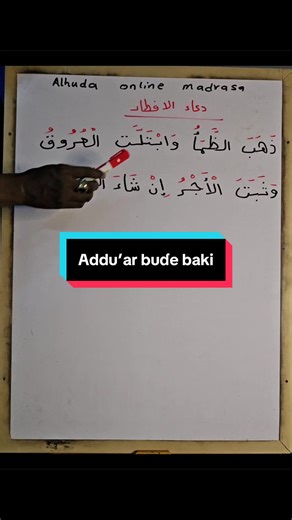 Alhuda online madrasa
دعاء الافطار
ذَهَبَ الظَّمَأُ وَابْتَلَّتِ الْعُرُوقُ
وَثَبَتَ الْأَجْرُ إِنْ شَاءَ
Addu'ar buɗe baki